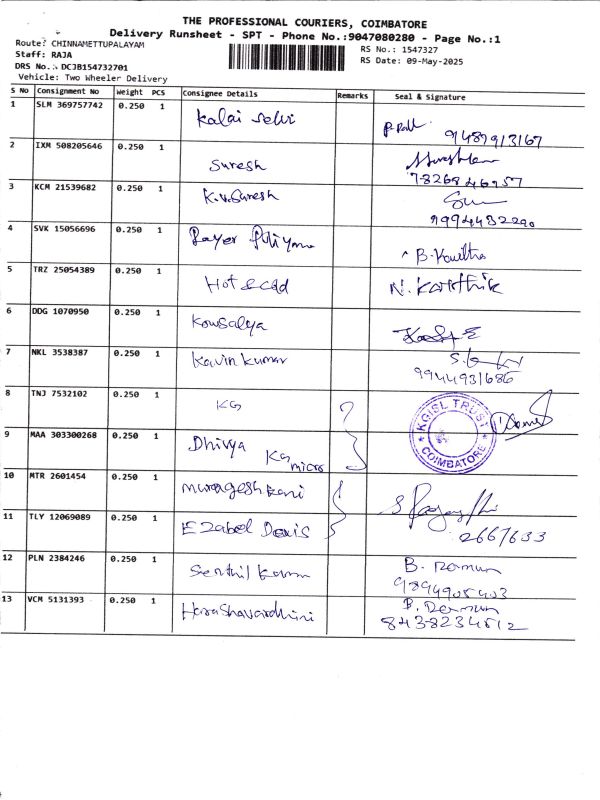 THE PROFESSIONAL COURIERS, COIMBATORE
Delivery Runsheet - SPT - Phone No.:9047080280 - Page No.:1
Route: CHINNAMETTUPALAYAM
RS No.: 1547327
Staff: RAJA
RS Date: 09-May-2025
DRS No.: DCJB154732701
Vehicle: Two Wheeler Delivery
S No Consignment No Weight PCS Consignee Details Remarks Seal & Signature
1 SLM 369757742 0.250 1 Kalai Selvi 9489913167
2 IXM 508205646 0.250 1 Suresh
3 KCM 21539682 0.250 1 K.V.Suresh 9994432290
4 SVK 15056696 0.250 1 B. Kavitha
5 TRZ 25054389 0.250 1 N. Karthik
6 DDG 1070950 0.250 1 Kousalya
7 NKL 3538387 0.250 1 Kavin Kumar 9944931686
8 TNJ 7532102 0.250 1 KG
KGISL TRUST
COIMBATORE
9 MAA 303300268 0.250 1 Dhivya KG micro
10 MTR 2601454 0.250 1 Murugeshkani
11 TLY 12069089 0.250 1 2667633
12 PLN 2384246 0.250 1 Senthil Kumar B. Raman 9894905403
13 VCM 5131393 0.250 1 Harashavardhini B. Raman 8438234512